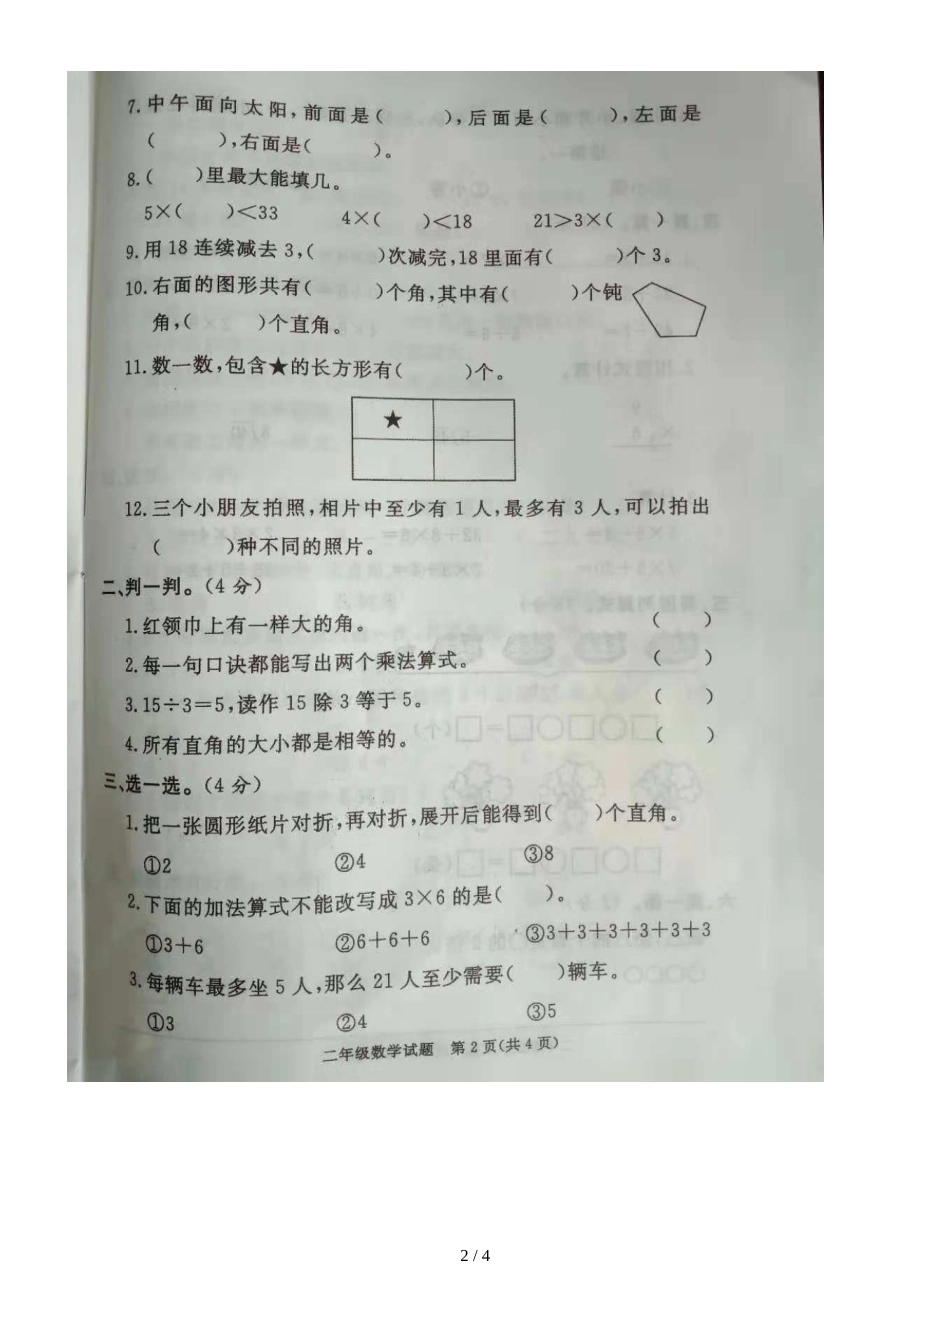 7.中午面向太阳,前面是(　　),后面是(　　),左面是
(　　),右面是(　　)。
8.(　　)里最大能填几。
5×(　　)<33　　4×(　　)<18　　21>3×(　　)
9.用 18 连续减去 3,(　　)次减完,18 里面有(　　)个 3。
10.右面的图形共有(　　)个角,其中有(　　)个钝
角,(　　)个直角。
11.数一数,包含★的长方形有(　　)个。
★
12.三个小朋友拍照,相片中至少有 1 人,最多有 3 人,可以拍出
(　　)种不同的照片。
二、判一判。(4 分)
1.红领巾上有一样大的角。(　　)
2.每一句口诀都能写出两个乘法算式。(　　)
3.15÷3=5,读作 15 除 3 等于 5。(　　)
4.所有直角的大小都是相等的。(　　)
三、选一选。(4 分)
1.把一张圆形纸片对折,再对折,展开后能得到(　　)个直角。
①2　　②4　　③8
2.下面的加法算式不能改写成 3×6 的是(　　)。
①3+6　　②6+6+6　　③3+3+3+3+3+3
3.每辆车最多坐 5 人,那么 21 人至少需要(　　)辆车。
①3　　②4　　③5
二年级数学试题　第 2 页(共 4 页)
2 / 4